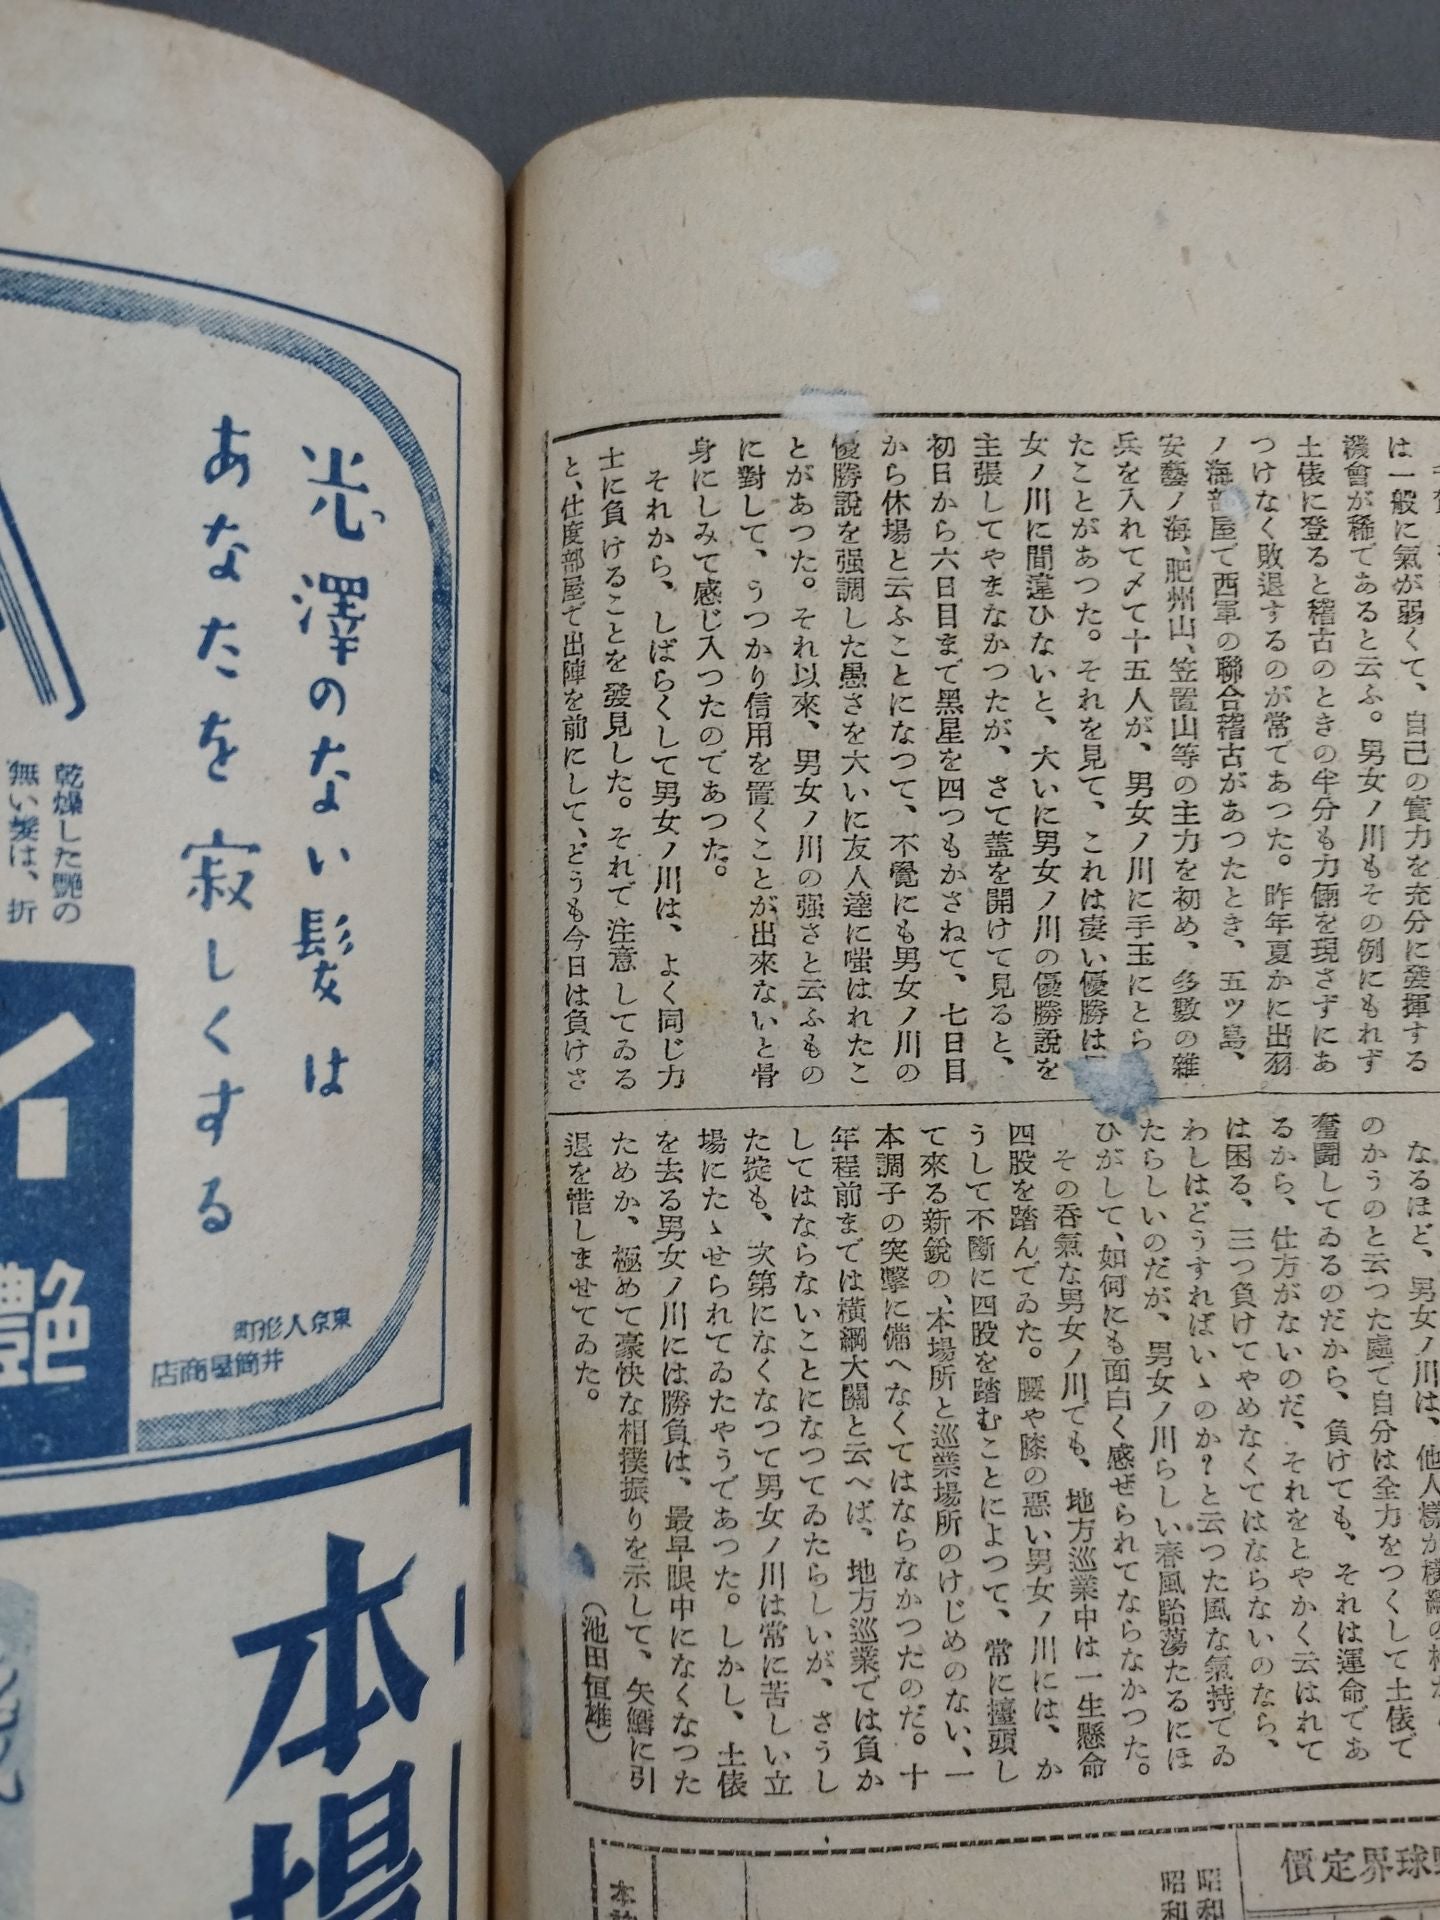 は一般に氣が弱くて、自己の實力を充分に發揮する
機會が稀であると云ふ。男女ノ川もその例にもれず
土俵に登ると稽古のときの半分も力倆を現さずにあ
つけなく敗退するのが常であつた。昨年夏かに出羽
ノ海部屋で西軍の聯合稽古があつたとき、五ツ島、
安藝ノ海、肥州山、笠置山等の主力を初め、多數の雜
兵を入れて〆て十五人が、男女ノ川に手玉にとら
たことがあつた。それを見て、これは凄い優勝は
女ノ川に間違ひないと、大いに男女ノ川の優勝說を
主張してやまなかつたが、さて蓋を開けて見ると、
初日から六日目まで黑星を四つもかさねて、七日目
から休場と云ふことになつて、不覺にも男女ノ川の
優勝說を强調した愚さを大いに友人達に嗤はれたこ
とがあつた。それ以來、男女ノ川の强さと云ふもの
に對して、うつかり信用を置くことが出來ないと骨
身にしみて感じ入つたのであつた。
それから、しばらくして男女ノ川は、よく同じ力
士に負けることを發見した。それで注意してゐる
と、仕度部屋で出陣を前にして、どうも今日は負けさ
なるほど、男女ノ川は、他人樣が橫綱の
のかうのと云つた處で自分は全力をつくして土俵で
奮鬪してゐるのだから、負けても、それは運命であ
るから、仕方がないのだ、それをとやかく云はれて
は困る、三つ負けてやめなくてはならないのなら、
わしはどうすればいゝのか?と云つた風な氣持でゐ
たらしいのだが、男女ノ川らしい春風駘蕩たるにほ
ひがして、如何にも面白く感ぜられてならなかつた。
その呑氣な男女ノ川でも、地方巡業中は一生懸命
四股を踏んでゐた。腰や膝の惡い男女ノ川には、か
うして不斷に四股を踏むことによつて、常に擡頭し
て來る新銳の、本場所と巡業場所のけじめのない、一
本調子の突擊に備へなくてはならなかつたのだ。十
年程前までは橫綱大關と云へば、地方巡業では負か
してはならないことになつてゐたらしいが、さうし
た掟も、次第になくなつて男女ノ川は常に苦しい立
場にたゝせられてゐたやうであつた。しかし、土俵
を去る男女ノ川には勝負は、最早眼中になくなつた
ためか、極めて豪快な相撲振りを示して、矢鱈に引
退を惜しませてゐた。
(池田恒雄)
球界定價
昭和
昭和
光澤のない髮は
あなたを寂しくする
乾燥した艷の
無い髮は、折
イ
艷
東京人形町
井筒屋商店
本場